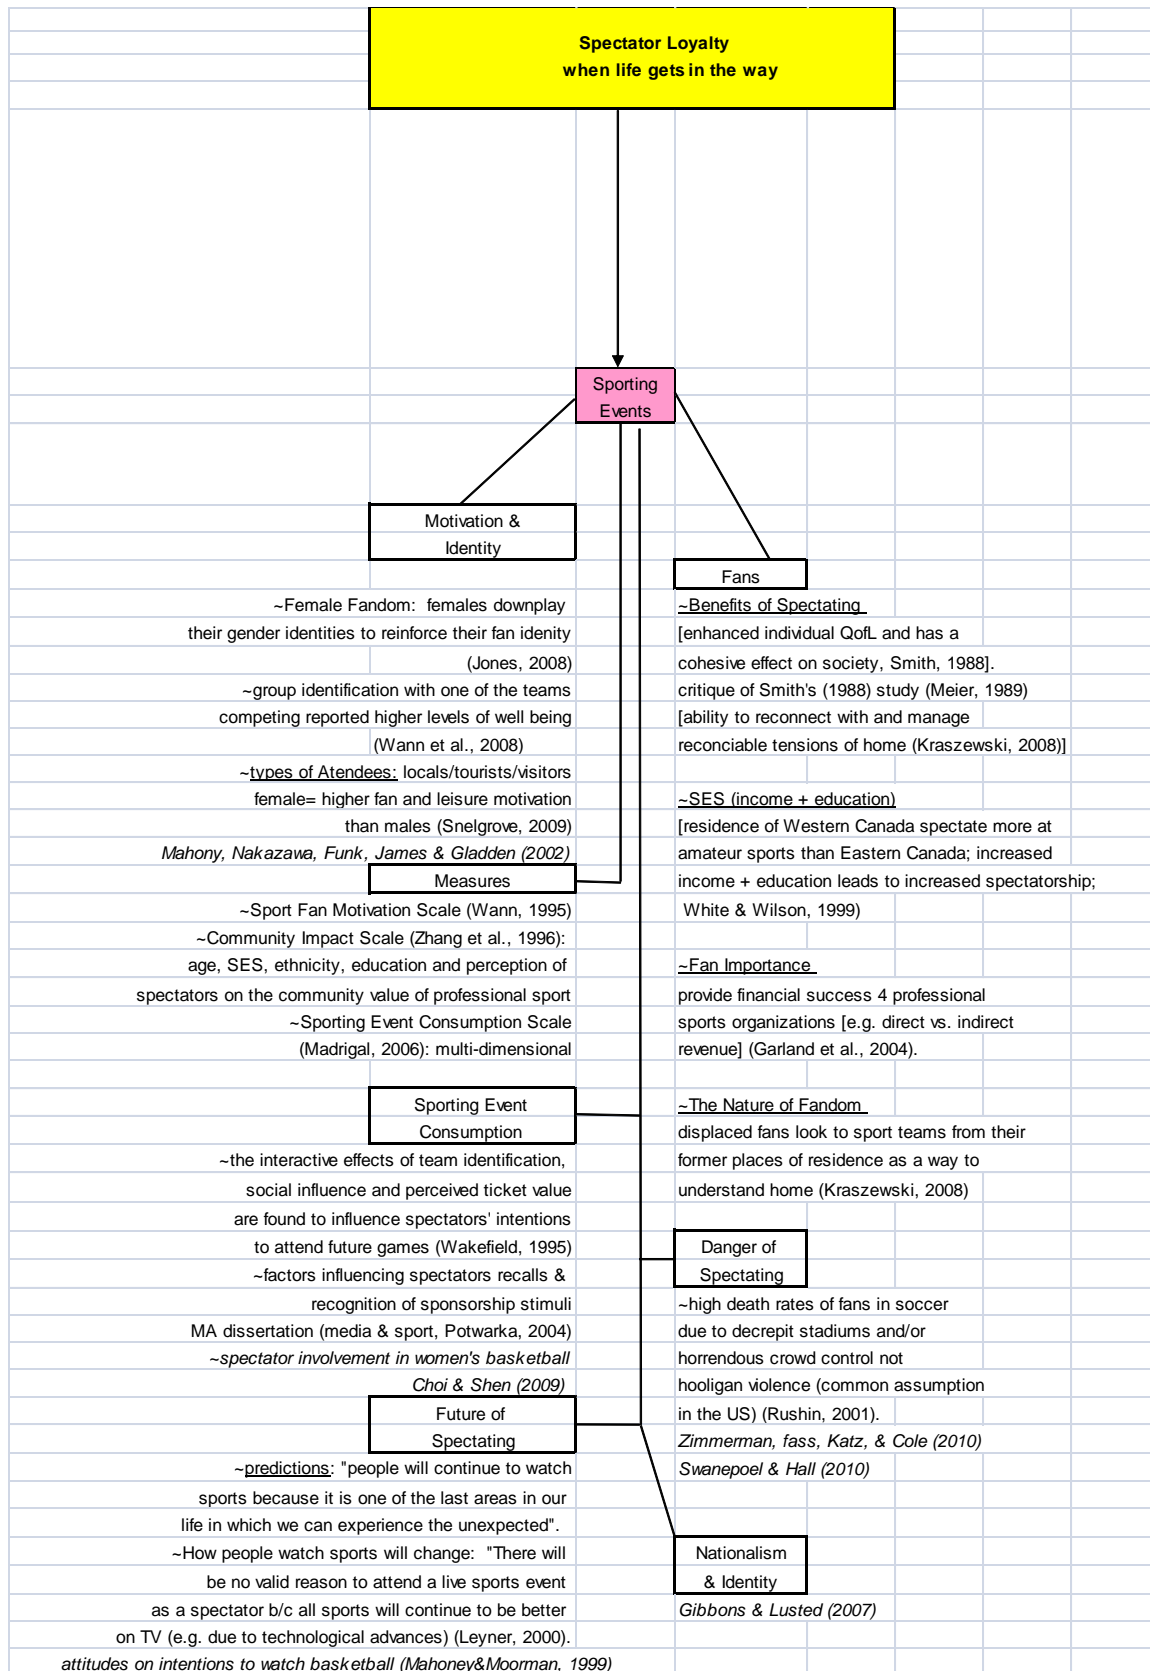 Spectator Loyalty
when life gets in the way
Sporting
Events
Motivation &
Identity
~Female Fandom:  females downplay
their gender identities to reinforce their fan idenity
(Jones, 2008)
~group identification with one of the teams
competing reported higher levels of well being
(Wann et al., 2008)
~types of Atendees: locals/tourists/visitors
female= higher fan and leisure motivation
than males (Snelgrove, 2009)
Mahony, Nakazawa, Funk, James & Gladden (2002)
Measures
~Sport Fan Motivation Scale (Wann, 1995)
~Community Impact Scale (Zhang et al., 1996):
age, SES, ethnicity, education and perception of
spectators on the community value of professional sport
~Sporting Event Consumption Scale
(Madrigal, 2006): multi-dimensional
Sporting Event
Consumption
~the interactive effects of team identification,
social influence and perceived ticket value
are found to influence spectators' intentions
to attend future games (Wakefield, 1995)
~factors influencing spectators recalls &
recognition of sponsorship stimuli
MA dissertation (media & sport, Potwarka, 2004)
~spectator involvement in women's basketball
Choi & Shen (2009)
Future of
Spectating
~predictions: "people will continue to watch
sports because it is one of the last areas in our
life in which we can experience the unexpected".
~How people watch sports will change:  "There will
be no valid reason to attend a live sports event
as a spectator b/c all sports will continue to be better
on TV (e.g. due to technological advances) (Leyner, 2000).
attitudes on intentions to watch basketball (Mahoney&Moorman, 1999)
Fans
~Benefits of Spectating
[enhanced individual QofL and has a
cohesive effect on society, Smith, 1988].
critique of Smith's (1988) study (Meier, 1989)
[ability to reconnect with and manage
reconciable tensions of home (Kraszewski, 2008)]
~SES (income + education)
[residence of Western Canada spectate more at
amateur sports than Eastern Canada; increased
income + education leads to increased spectatorship;
White & Wilson, 1999)
~Fan Importance
provide financial success 4 professional
sports organizations [e.g. direct vs. indirect
revenue] (Garland et al., 2004).
~The Nature of Fandom
displaced fans look to sport teams from their
former places of residence as a way to
understand home (Kraszewski, 2008)
Danger of
Spectating
~high death rates of fans in soccer
due to decrepit stadiums and/or
horrendous crowd control not
hooligan violence (common assumption
in the US) (Rushin, 2001).
Zimmerman, fass, Katz, & Cole (2010)
Swanepoel & Hall (2010)
Nationalism
& Identity
Gibbons & Lusted (2007)